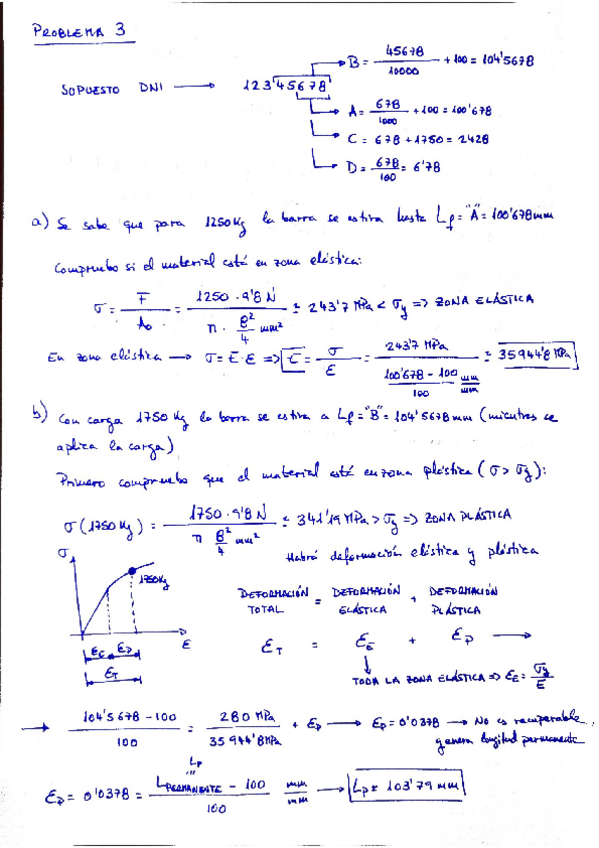 PROBLEMA 3
B = 45678/10000 + 100 = 104'5678
SUPUESTO DNI → 123'45678
A = 678/1000 + 100 = 100'678
C = 678 + 1750 = 2428
D = 678/100 = 6'78
a) Se sabe que para 1250Kg la barra se estira hasta Lf = "A" = 100'678mm
Compruebo si el material está en zona elástica:
σ = F/A₀ = 1250 · 9'8 N / π · 8²/4 mm² = 243'7 MPa < σy => ZONA ELÁSTICA
En zona elástica → σ = E·ε => E = σ/ε = 243'7 MPa / (100'678 - 100)/100 mm/mm = 35944'8 MPa
b) Con carga 1750 Kg la barra se estira a Lf = "B" = 104'5678mm (mientras se
aplica la carga)
Primero compruebo que el material está en zona plástica (σ > σy):
σ (1750 Kg) = 1750 · 9'8 N / π 8²/4 mm² = 341'19 MPa > σy => ZONA PLÁSTICA
Habrá deformación elástica y plástica
σ
1750Kg
εE εP
ε
εT
DEFORMACIÓN TOTAL = DEFORMACIÓN ELÁSTICA + DEFORMACIÓN PLÁSTICA
εT = εE + εP →
TODA LA ZONA ELÁSTICA => εE = σy/E
→ 104'5678 - 100 / 100 = 280 MPa / 35944'8 MPa + εP → εP = 0'0378 → No es recuperable,
genera longitud permanente
Lp
εP = 0'0378 = LPERMANENTE - 100 / 100 mm/mm → Lp = 103'79 mm